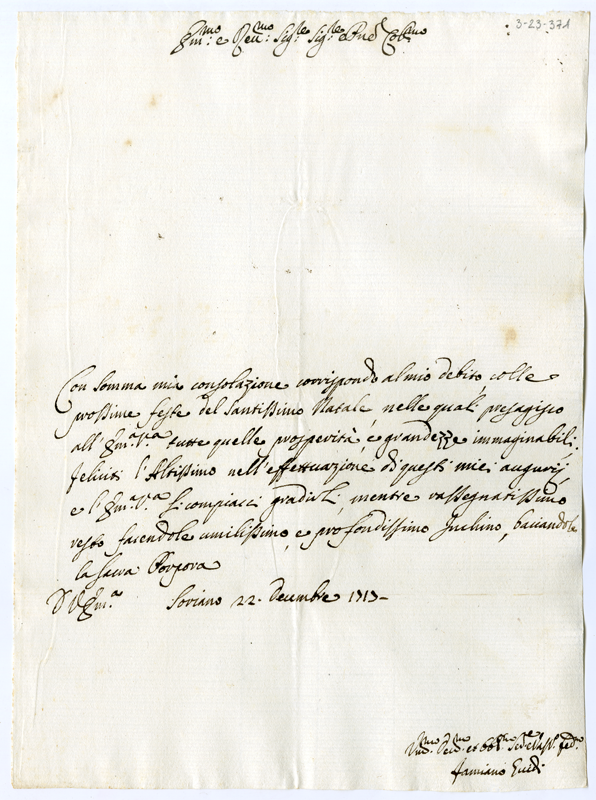 3-23-371
Em.mo e Rev.mo Sig.re Sig.re e Pne Col.mo
Con somma mia consolazione corrispondo al mio debito, colle
prossime feste del Santissimo Natale, nelle quali presagisco
all'Em.za V.ra tutte quelle prosperità, e grandezze immaginabili:
feliciti l'Altissimo nell'effettuazione di questi miei augurij,
e l'Em.za V.ra si compiacci gradirli, mentre rassegnatissimo
resto facendole umilissimo, e profondissimo Inchino, baciandole
la sacra Porpora
D V Em.a Soriano 22. Decembre 1713-
Um.mo Dev.mo et Obb.mo
Damiano Guidi